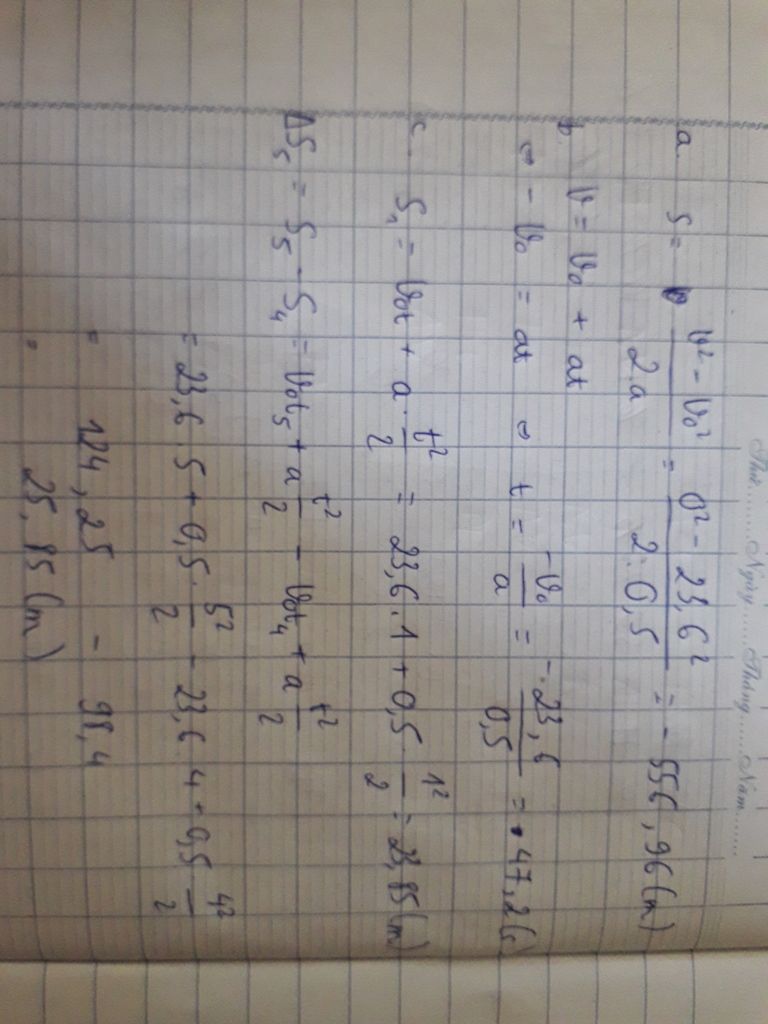 Thứ........Ngày......Tháng......Năm........
a. S = v² - v₀² / 2.a = 0² - 23,6² / 2.0,5 = - 556,96 (m)
b. v = v₀ + at
⇔ - v₀ = at ⇔ t = -v₀ / a = -23,6 / 0,5 = - 47,2 (s)
c. S₁ = v₀t + a.t²/2 = 23,6.1 + 0,5.1²/2 = 23,85 (m)
ΔS₅ = S₅ - S₄ = v₀t₅ + a t²/2 - v₀t₄ + a t²/2
= 23,6.5 + 0,5.5²/2 - 23,6.4 + 0,5 4²/2
= 124,25 - 98,4
= 25,85 (m)